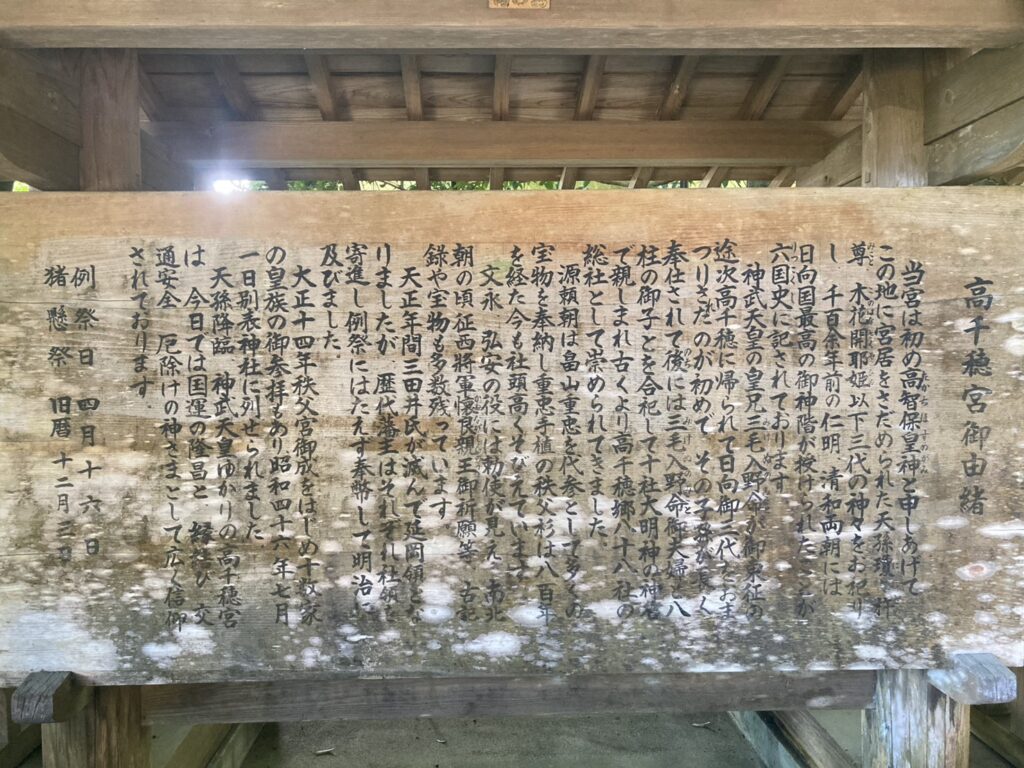 高千穂宮御由緒
当宮は初め高智保皇神と申しあげて
この地に宮居をさだめられた天孫瓊々杵
尊 木花開耶姫以下三代の神々をお祀り
し 千百余年前の仁明、清和両朝には
日向国最高の御神階が授けられたことが
六国史に記されております
神武天皇の皇兄三毛入野命が御東征の
途次高千穂に帰られて日向御三代をおま
つりさだのが初めで その子孫が長く
奉仕されて後には三毛入野命御夫婦と八
柱の御子とを合祀して十社大明神の神名
で親しまれ古くより高千穂郷八十八社の
総社として崇められてきました
源頼朝は畠山重忠を代参として多くの
宝物を奉納し重忠手植の秩父杉は八百年
を経た今も社頭高くそびえています
文永 弘安の役には勅使が見え 南北
朝の頃征西将軍懐良親王御祈願等 古記
録や宝物も多数残っています
天正年間三田井氏が滅んで延岡領とな
りましたが 歴代藩主はそれぞれ社領を
寄進し例祭にはたえず奉幣して明治に
及びました
大正十四年秩父宮御成をはじめ十数家
の皇族の御参拝もあり昭和四十六年七月
一日別表神社に列せられました
天孫降臨 神武天皇ゆかりの高千穂宮
は 今日では国運の隆昌と 縁結び 交
通安全 厄除けの神さまとして広く信仰
されております
例祭日 四月十六日
猪懸祭 旧暦十二月三日